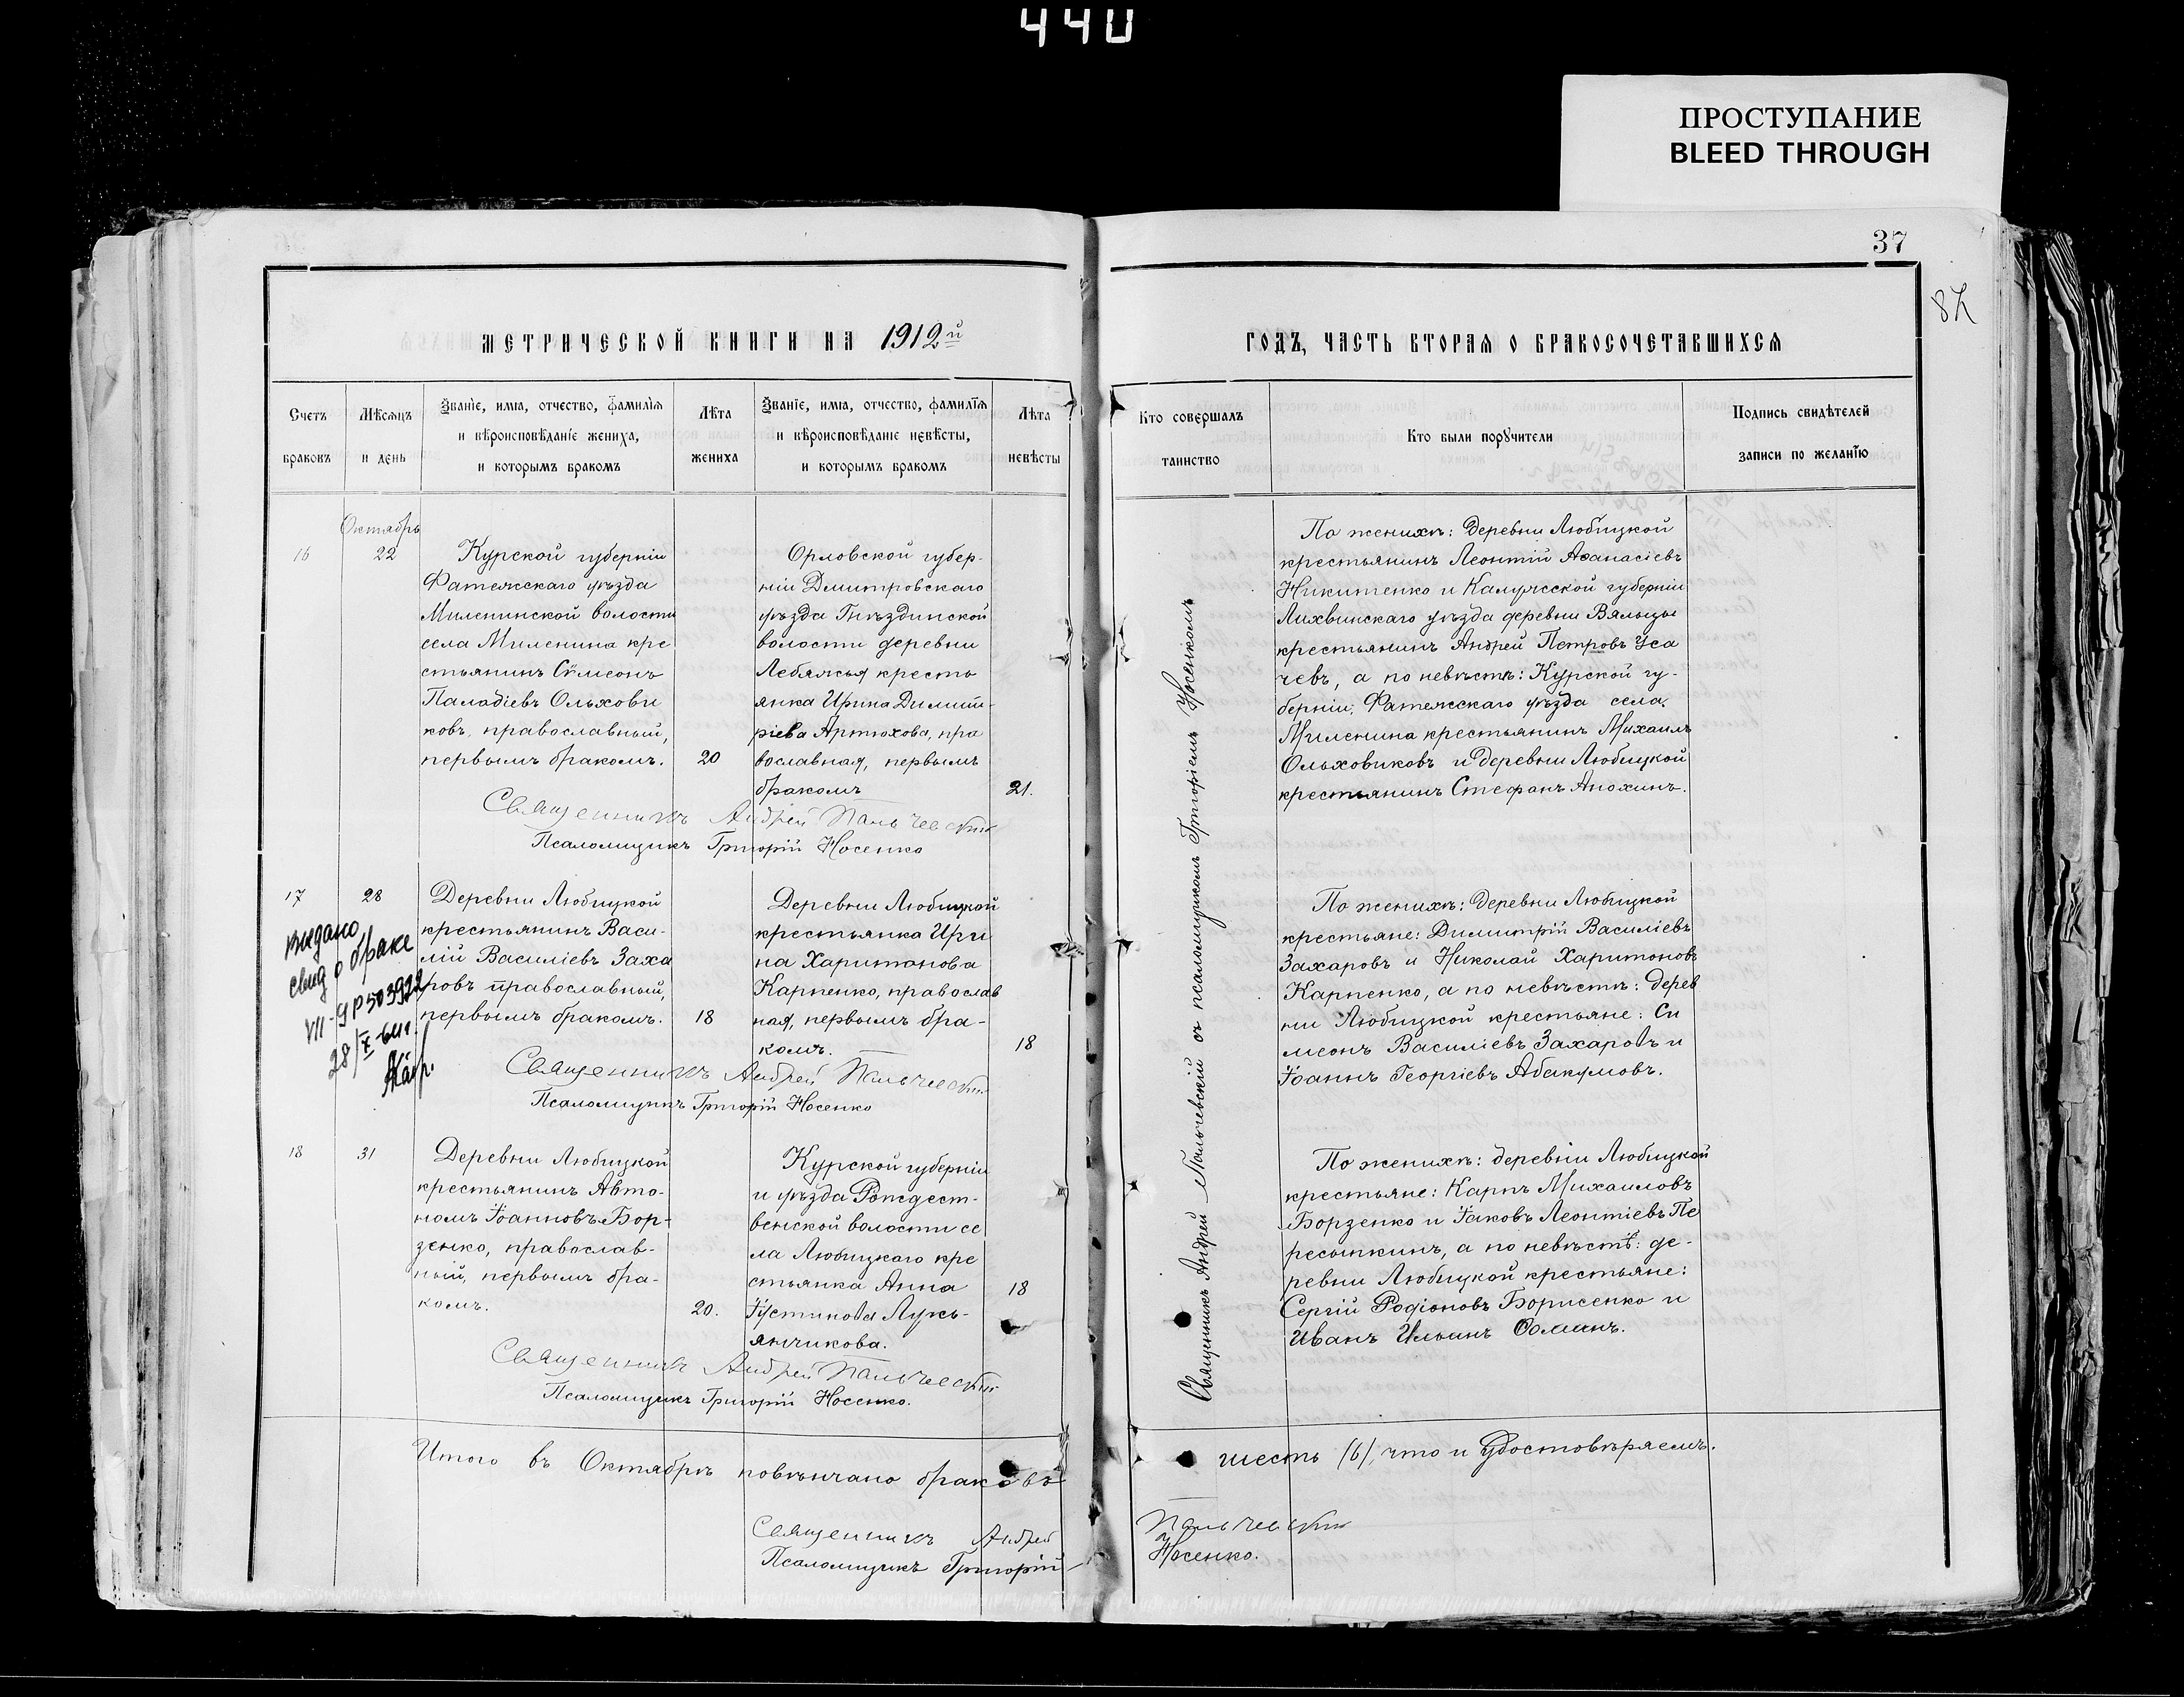 440
ПРОСТУПАНИЕ
BLEED THROUGH
37
87
МЕТРИЧЕСКОЙ КНИГИ НА 1912й
ГОДЪ, ЧАСТЬ ВТОРАЯ О БРАКОСОЧЕТАВШИХСЯ
Счетъ
браковъ
Мѣсяцъ
и день
Званіе, имя, отчество, фамилія
и вѣроисповѣданіе жениха,
и которымъ бракомъ
Лѣта
жениха
Званіе, имя, отчество, фамилія
и вѣроисповѣданіе невѣсты,
и которымъ бракомъ
Лѣта
невѣсты
Кто совершалъ
таинство
Кто были поручители
Подпись свидѣтелей
записи по желанію
Октябрь
16
22
Курской губерніи
Фатежскаго уѣзда
Миленинской волости
села Миленина кре
стьянинъ Сѵмеонъ
Паладіевъ Ольхови
ковъ, православный,
первымъ бракомъ.
20
Орловской губер-
ніи Дмитровскаго
уѣзда Гнѣздинской
волости деревни
Лебяжья кресть
янка Ирина Димит-
ріева Артюхова, пра
вославная, первымъ
бракомъ
21.
Священникъ Андрей Пальчевскій
Псаломщикъ Григорій Носенко
По женихѣ: деревни Любицкой
крестьянинъ Леонтій Аѳанасіевъ
Никитенко и Калужской губерніи
Лихвинскаго уѣзда деревни Вяльцы
крестьянинъ Андрей Петровъ Уса
чевъ, а по невѣстѣ: Курской гу-
берніи, Фатежскаго уѣзда села
Миленина крестьянинъ Михаилъ
Ольховиковъ и деревни Любицкой
крестьянинъ Стефанъ Анохинъ.
Священникъ Андрей Пальчевскій съ псаломщикомъ Григоріемъ Носенкомъ
17
28
выдано
свид о браке
VII-ЯР 503922
28/X-61г.
Деревни Любицкой
крестьянинъ Васи-
лій Василіевъ Заха
ровъ православный,
первымъ бракомъ.
18
Деревни Любицкой
крестьянка Ири
на Харитонова
Карпенко, православ
ная, первымъ бра-
комъ.
18
Священникъ Андрей Пальчевскій
Псаломщикъ Григорій Носенко
По женихѣ: деревни Любицкой
крестьяне: Димитрій Василіевъ
Захаровъ и Николай Харитоновъ
Карпенко, а по невѣстѣ: дерев
ни Любицкой крестьяне: Си
меонъ Василіевъ Захаровъ и
Іоаннъ Георгіевъ Абакумовъ.
18
31
Деревни Любицкой
крестьянинъ Авто-
номъ Іоанновъ Бор-
зенко, православ-
ный, первымъ бра-
комъ.
20.
Курской губерніи
и уѣзда Рождест-
венской волости се
ла Любицкаго кре
стьянка Анна
Іустинова Лукь-
янчикова.
18
Священникъ Андрей Пальчевскій
Псаломщикъ Григорій Носенко.
По женихѣ: деревни Любицкой
крестьяне: Карпъ Михаиловъ
Борзенко и Іаковъ Леонтіевъ Пе
ресыпкинъ, а по невѣстѣ: де-
ревни Любицкой крестьяне:
Сергій Родіоновъ Борисенко и
Иванъ Ильинъ Ѳоминъ.
Итого въ Октябрѣ повѣнчано браковъ
шесть (6), что и удостовѣряемъ.
Священникъ Андрей
Пальчевскій
Псаломщикъ Григорій
Носенко.